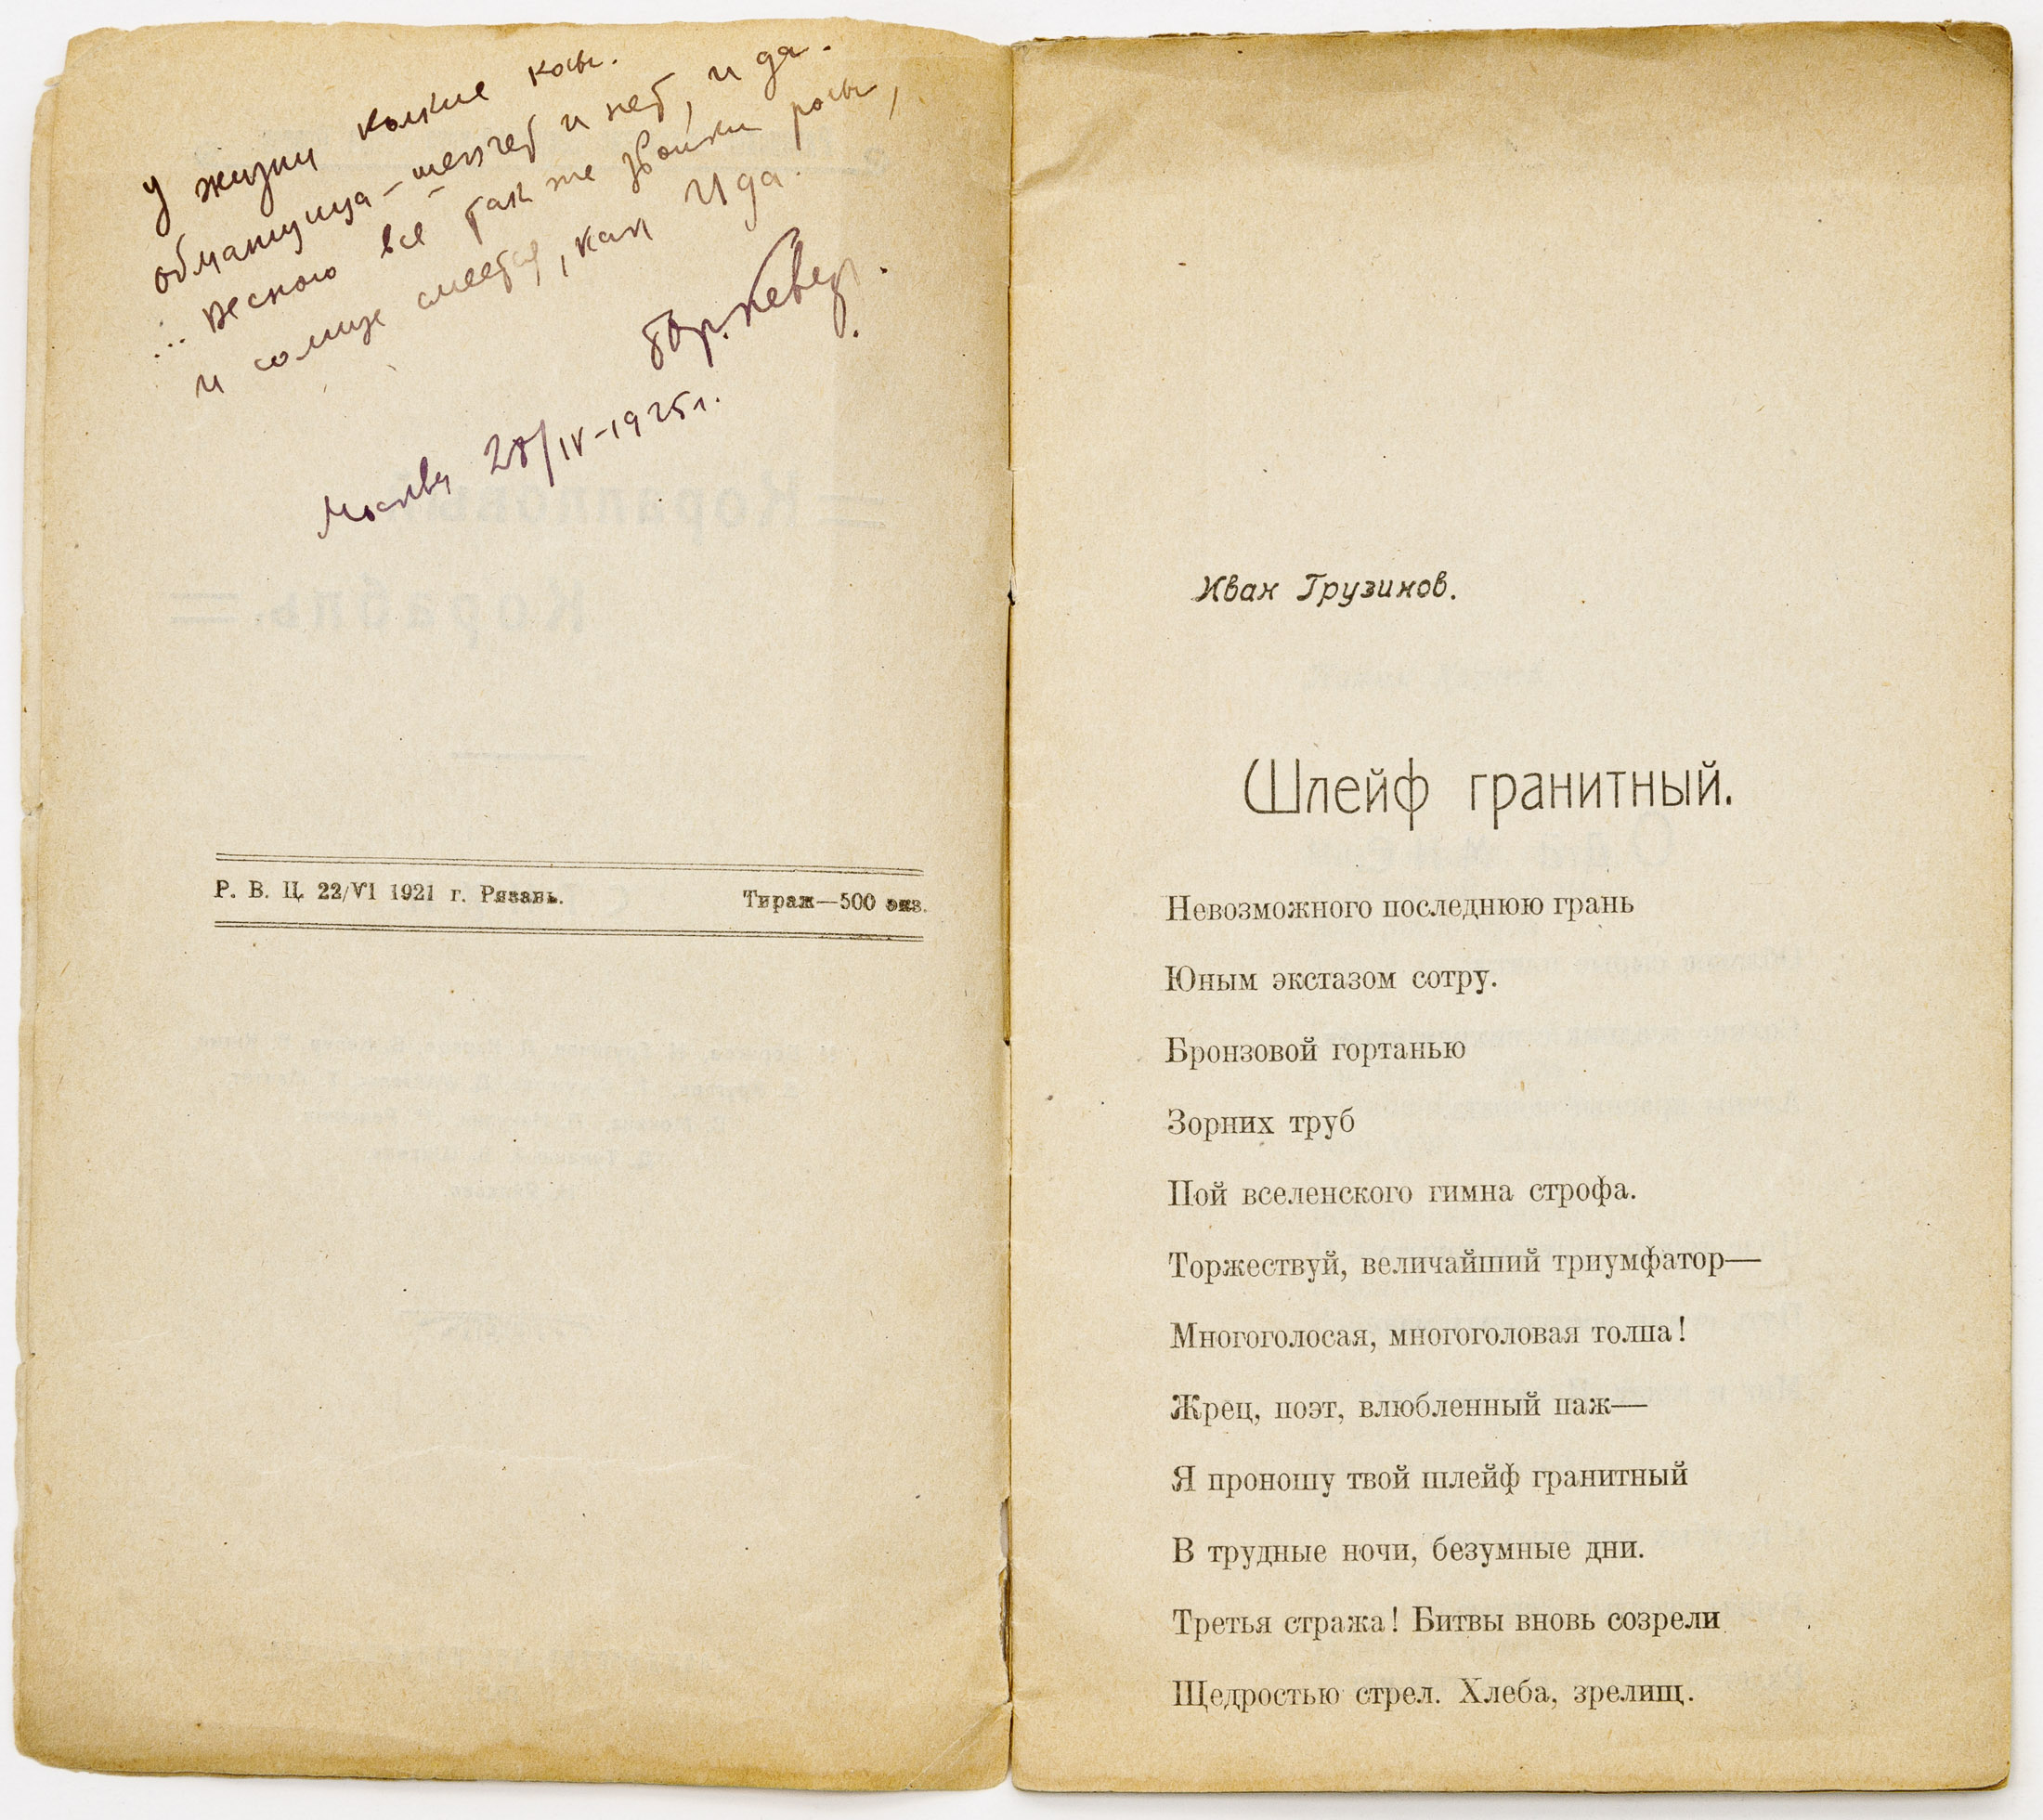 У жизни колкие косы.
обманщица — шепчет и нет, и да.
... Весною всё так же звонки росы,
и солнце смеется, как Ида.
Москва 28/IV-1925 г.
Р. В. Ц. 22/VI 1921 г. Рязань. Тираж—500 экз.
Иван Грузинов.
Шлейф гранитный.
Невозможного последнюю грань
Юным экстазом сотру.
Бронзовой гортанью
Зорних труб
Пой вселенского гимна строфа.
Торжествуй, величайший триумфатор—
Многоголосая, многоголовая толпа!
Жрец, поэт, влюбленный паж—
Я проношу твой шлейф гранитный
В трудные ночи, безумные дни.
Третья стража! Битвы вновь созрели
Щедростью стрел. Хлеба, зрелищ.